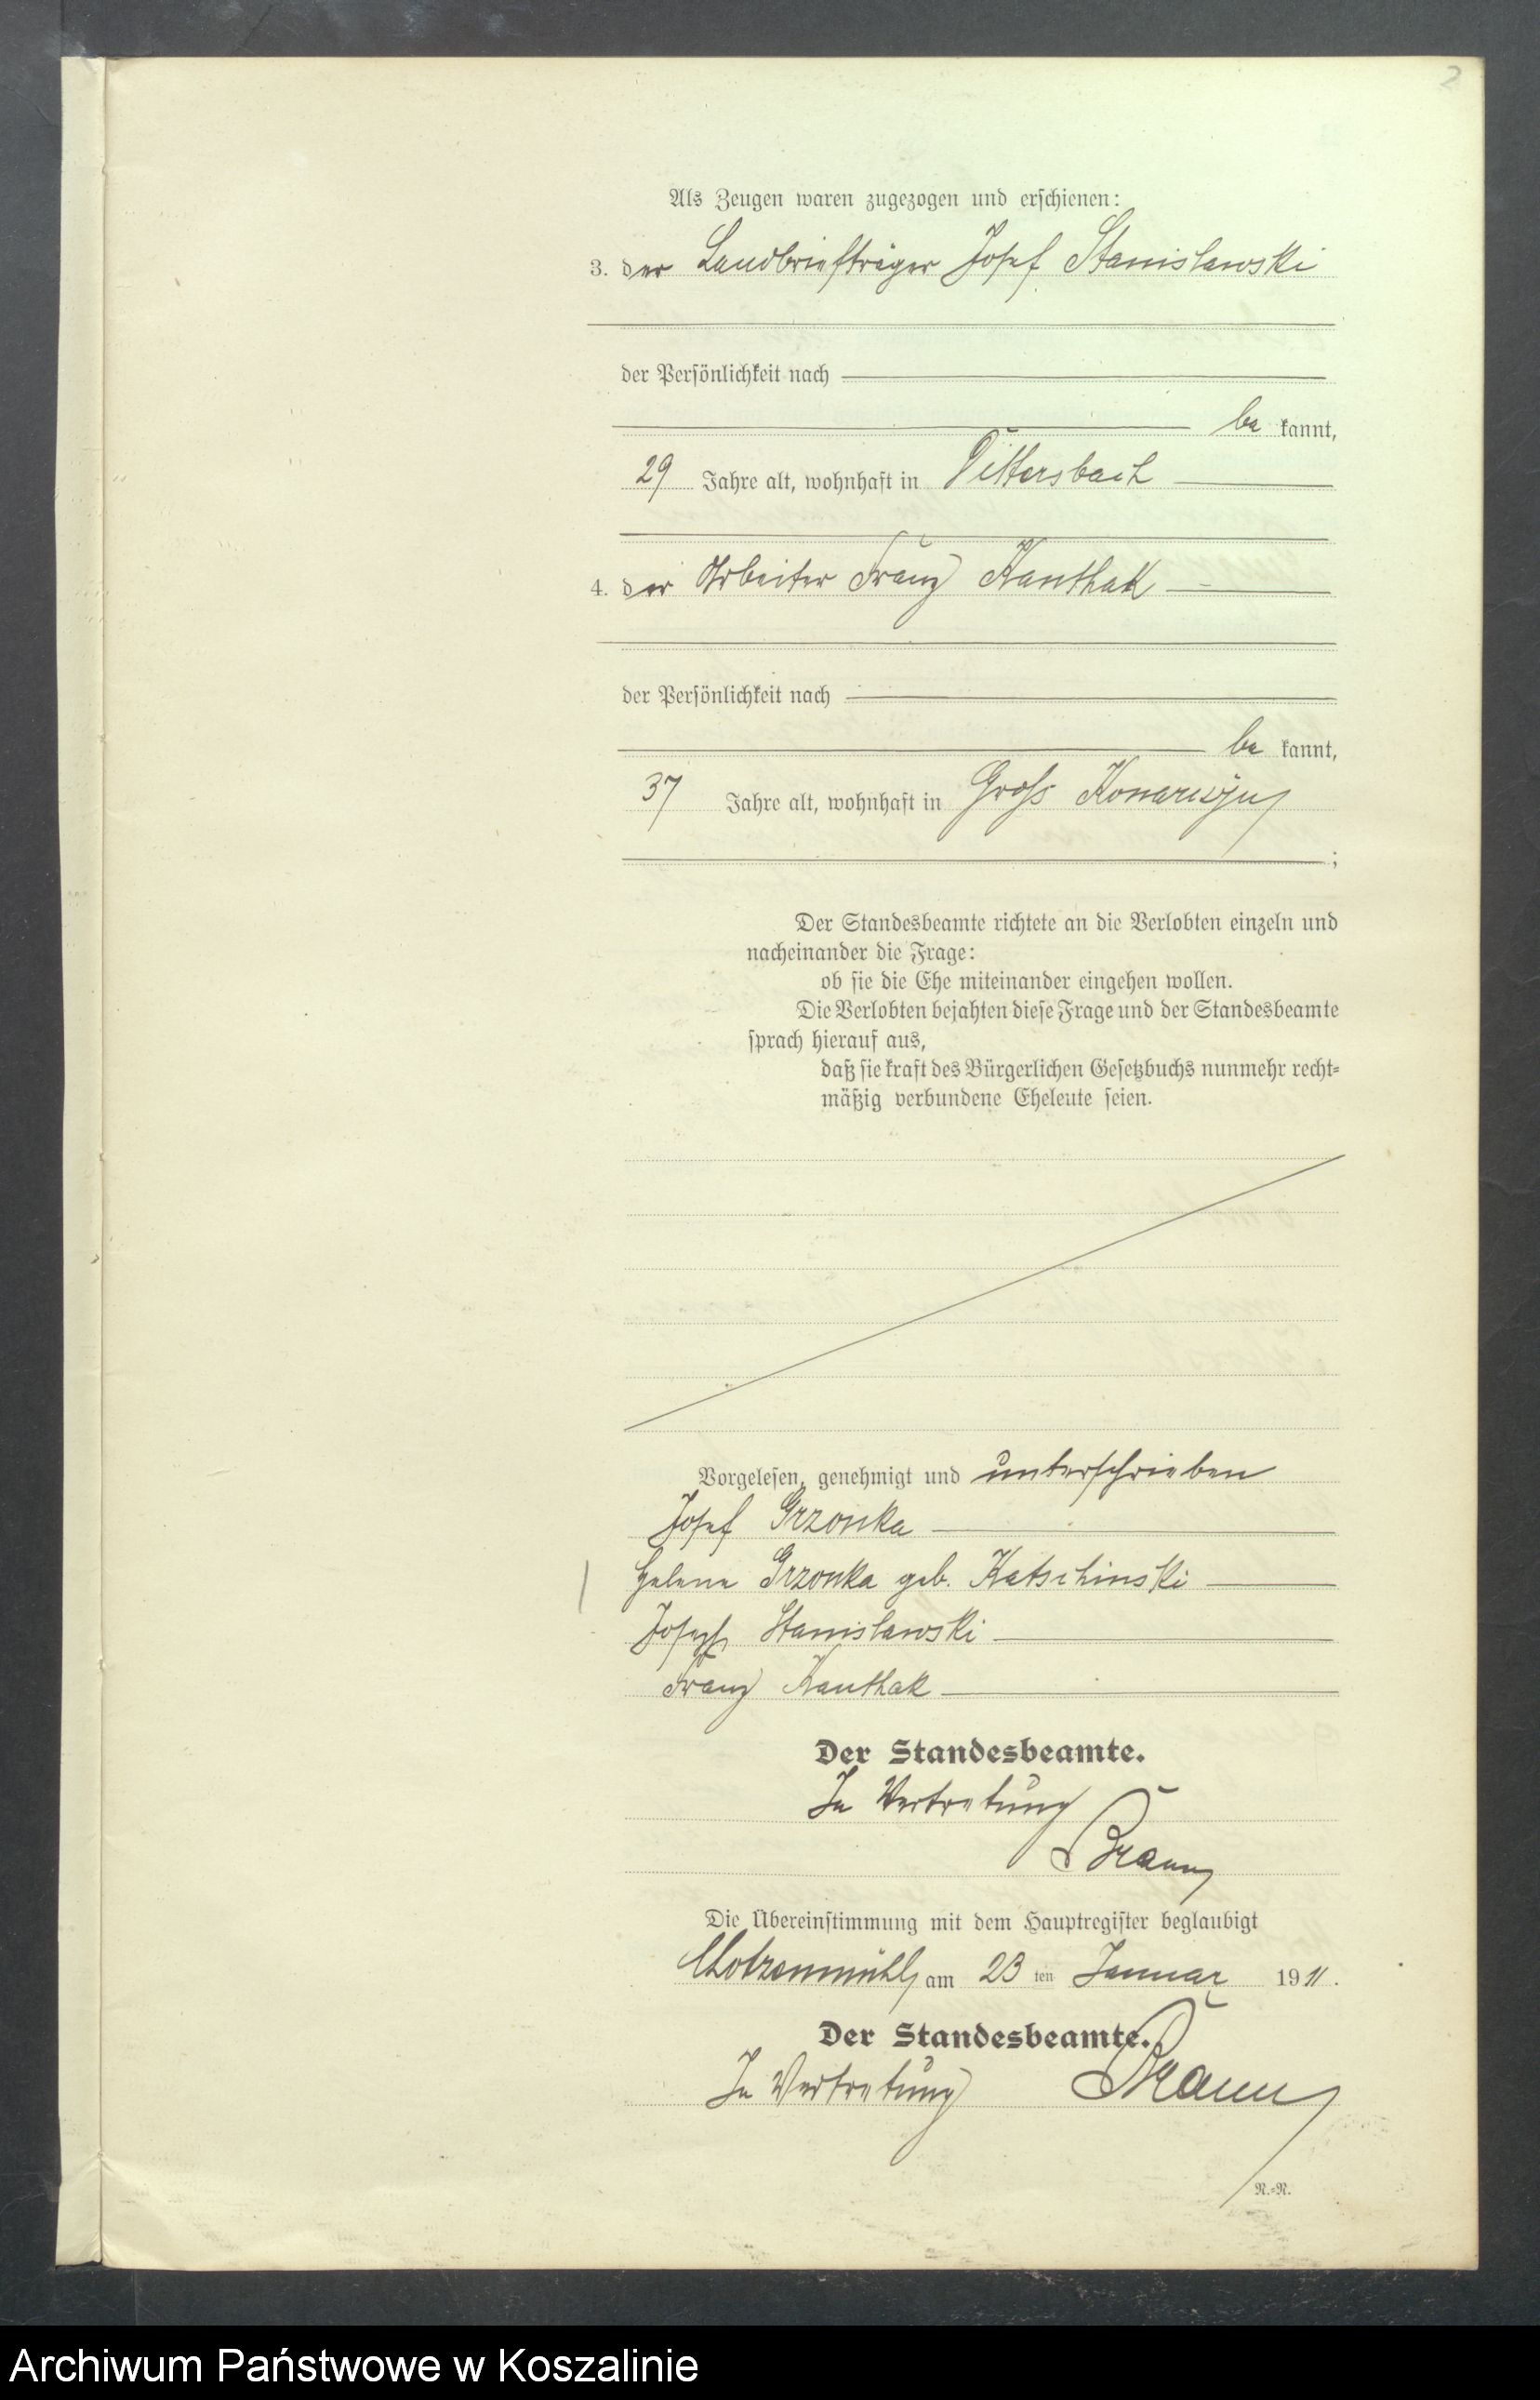 2
Als Zeugen waren zugezogen und erschienen:
3. der Landbriefträger Josef Stanislawski
der Persönlichkeit nach
be kannt,
29 Jahre alt, wohnhaft in Dittersbach
4. der Arbeiter Franz Kanthak
der Persönlichkeit nach
be kannt,
37 Jahre alt, wohnhaft in Groß
;
Der Standesbeamte richtete an die Verlobten einzeln und
nacheinander die Frage:
ob sie die Ehe miteinander eingehen wollen.
Die Verlobten bejahten diese Frage und der Standesbeamte
sprach hierauf aus,
daß sie kraft des Bürgerlichen Gesetzbuchs nunmehr recht-
mäßig verbundene Eheleute seien.
Vorgelesen, genehmigt und unterschrieben
Josef Grzonka
Helene Grzonka geb. Katschinski
Joseph Stanislawski
Franz Kanthak
Der Standesbeamte.
In Vertretung
Braun
Die Übereinstimmung mit dem Hauptregister beglaubigt
Chotzenmühl, am 23 ten Januar 1911.
Der Standesbeamte.
In Vertretung Braun
N.-R.
Archiwum Państwowe w Koszalinie